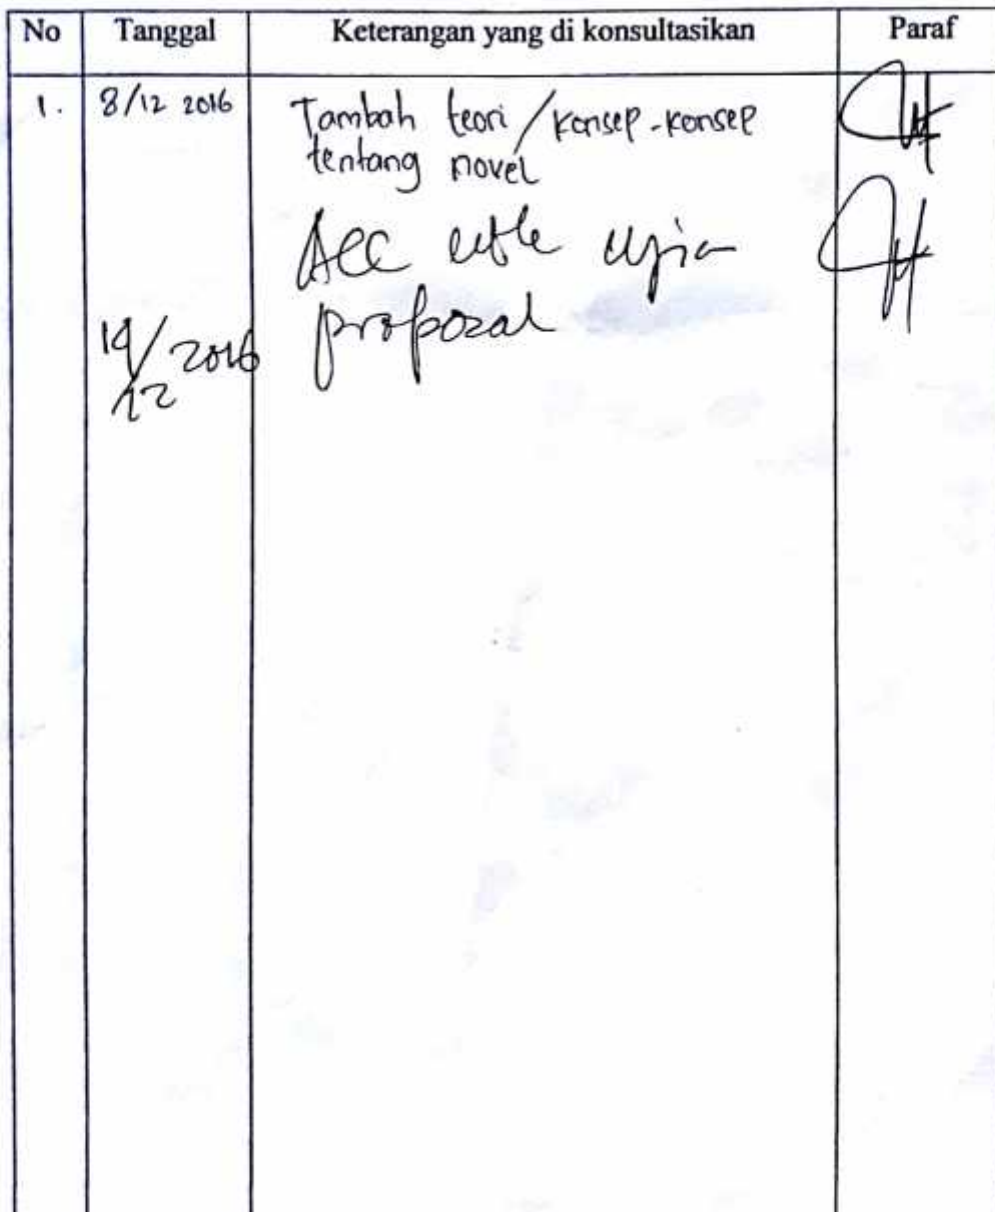 No Tanggal Keterangan yang di konsultasikan Paraf
1. 8/12 2016 Tambah teori / konsep-konsep
tentang novel
Acc ujian
proposal
19/12 2016